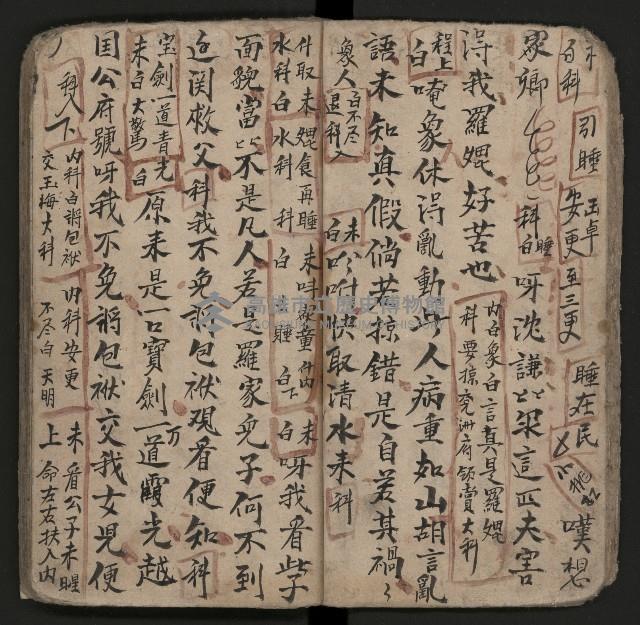 白科 引睡 安更 至三更 睡在民 嘆想
眾卿 科 睡白 呀沈謙〻梁這匹夫害
得我羅焜好苦也 內白象白言真是羅焜
科要掠兗洲府領賞大科
程上白 唵象休得亂動此人病重如山胡言亂
語未知真假倘若掠錯是自惹其禍〻
象人白不尽退科入 末白 吩咐快取清水來科
什取末焜食再睡 末叫家童什內
水科白水科 科白睡白下 末白 呀我看此子
面貌當〻不是凡人若是羅家兒子何不到
边関救父科我不免將包袱观看便知科
宝劍一道青光
末白大驚白 原來是一口寶劍一道万霞光越
国公府號呀我不免將包袱交我女児便
科入下 內科白將包袱 內科安更 末看公子未醒
交玉梅大科 不尽白 天明 上 命左右扶入內
高雄市立歷史博物館
KAOHSIUNG MUSEUM OF HISTORY